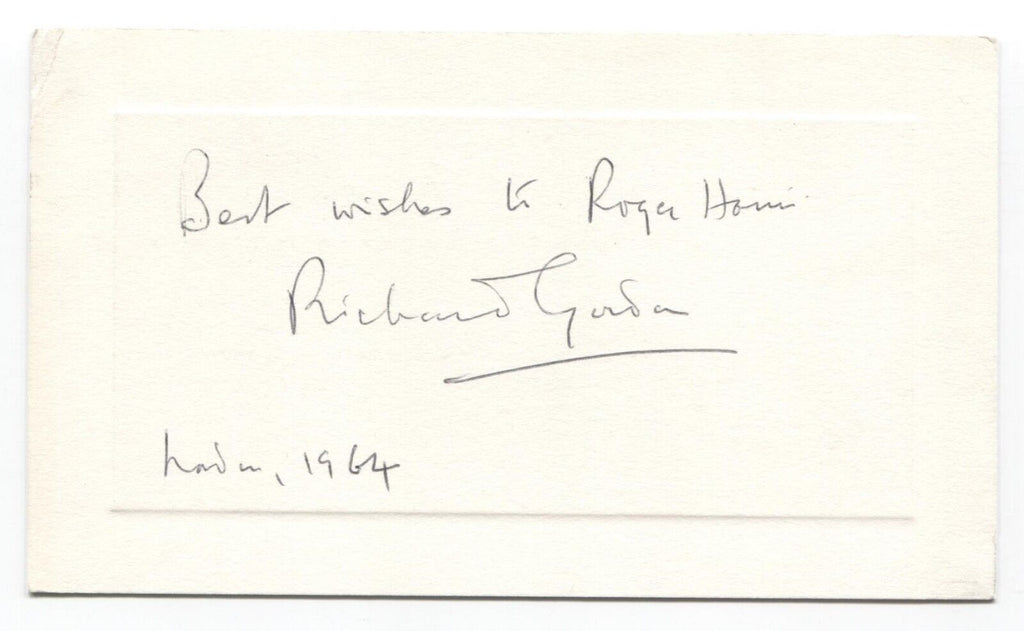 Best wishes to Roger Harris
Richard Gordon
London, 1964